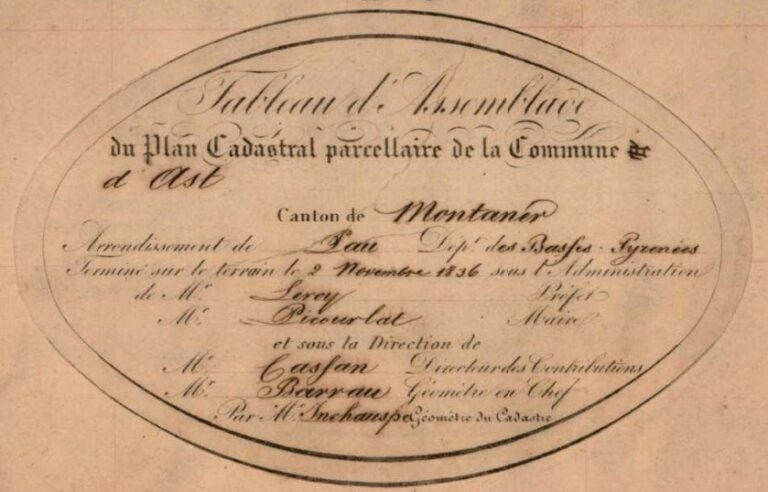 Tableau d'Assemblage
du Plan Cadastral parcellaire de la Commune de
d'Ast
Canton de Montaner
Arrondissement de Pau Dépt. des Basses-Pyrénées
Terminé sur le terrain le 2 Novembre 1836 sous l'Administration
de Mr. Leroy Préfet
Mr. Picourlat Maire
et sous la Direction de
Mr. Cassan Directeur des Contributions
Mr. Barrau Géomètre en Chef
Par Mr. Inchauspe Géomètre du Cadastre